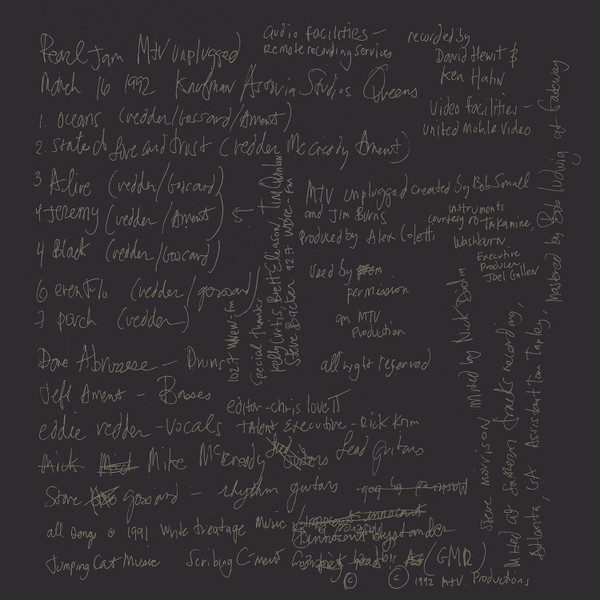 Pearl Jam MTV unplugged
March 16 1992 Kaufman Astoria Studios Queens
1. Oceans (vedder/Gossard/Ament)
2. State of love and trust (vedder McCready Ament)
3 Alive (vedder/Gossard)
4 Jeremy (vedder/Ament)
4 Black (vedder/Gossard)
6 even flo (vedder/gossard)
7 porch (vedder)
Dave Abruzzese - Drums
Jeff Ament - Basses
eddie vedder - vocals
Mike McCready Lead guitars
Stone Gossard - rhythm guitars
all songs © 1991 write treatage Music
Jumping Cat Music Scribing C-ment
innocent bystander
(GMR)
© © 1992 MTV Productions
audio facilities -
Remote recording services
recorded by
David Hewit &
Ken Hahn
Video facilities -
united Mobile Video
MTV unplugged created by Bob Small
and Jim Burns
Produced by Alex Coletti
Instruments
courtesy of Takamine,
Washburn
Executive
Producer,
Joel Gallen
Used by
permission
an MTV
Production
all right reserved
editor - chris love II
Talent Executive - Rick Krim
102.7 WNEW-fm
Special Thanks
Kelly Curtis, Brett Eliason, Tim Quinlan
Steve Backer 92.7 WDRE-Fm
Steve morrison Mixed by Nick Didia
Mixed at Southern Tracks recording,
Atlanta, GA Assistant Tom Tapley, Mastered by Bob Ludwig at Gateway